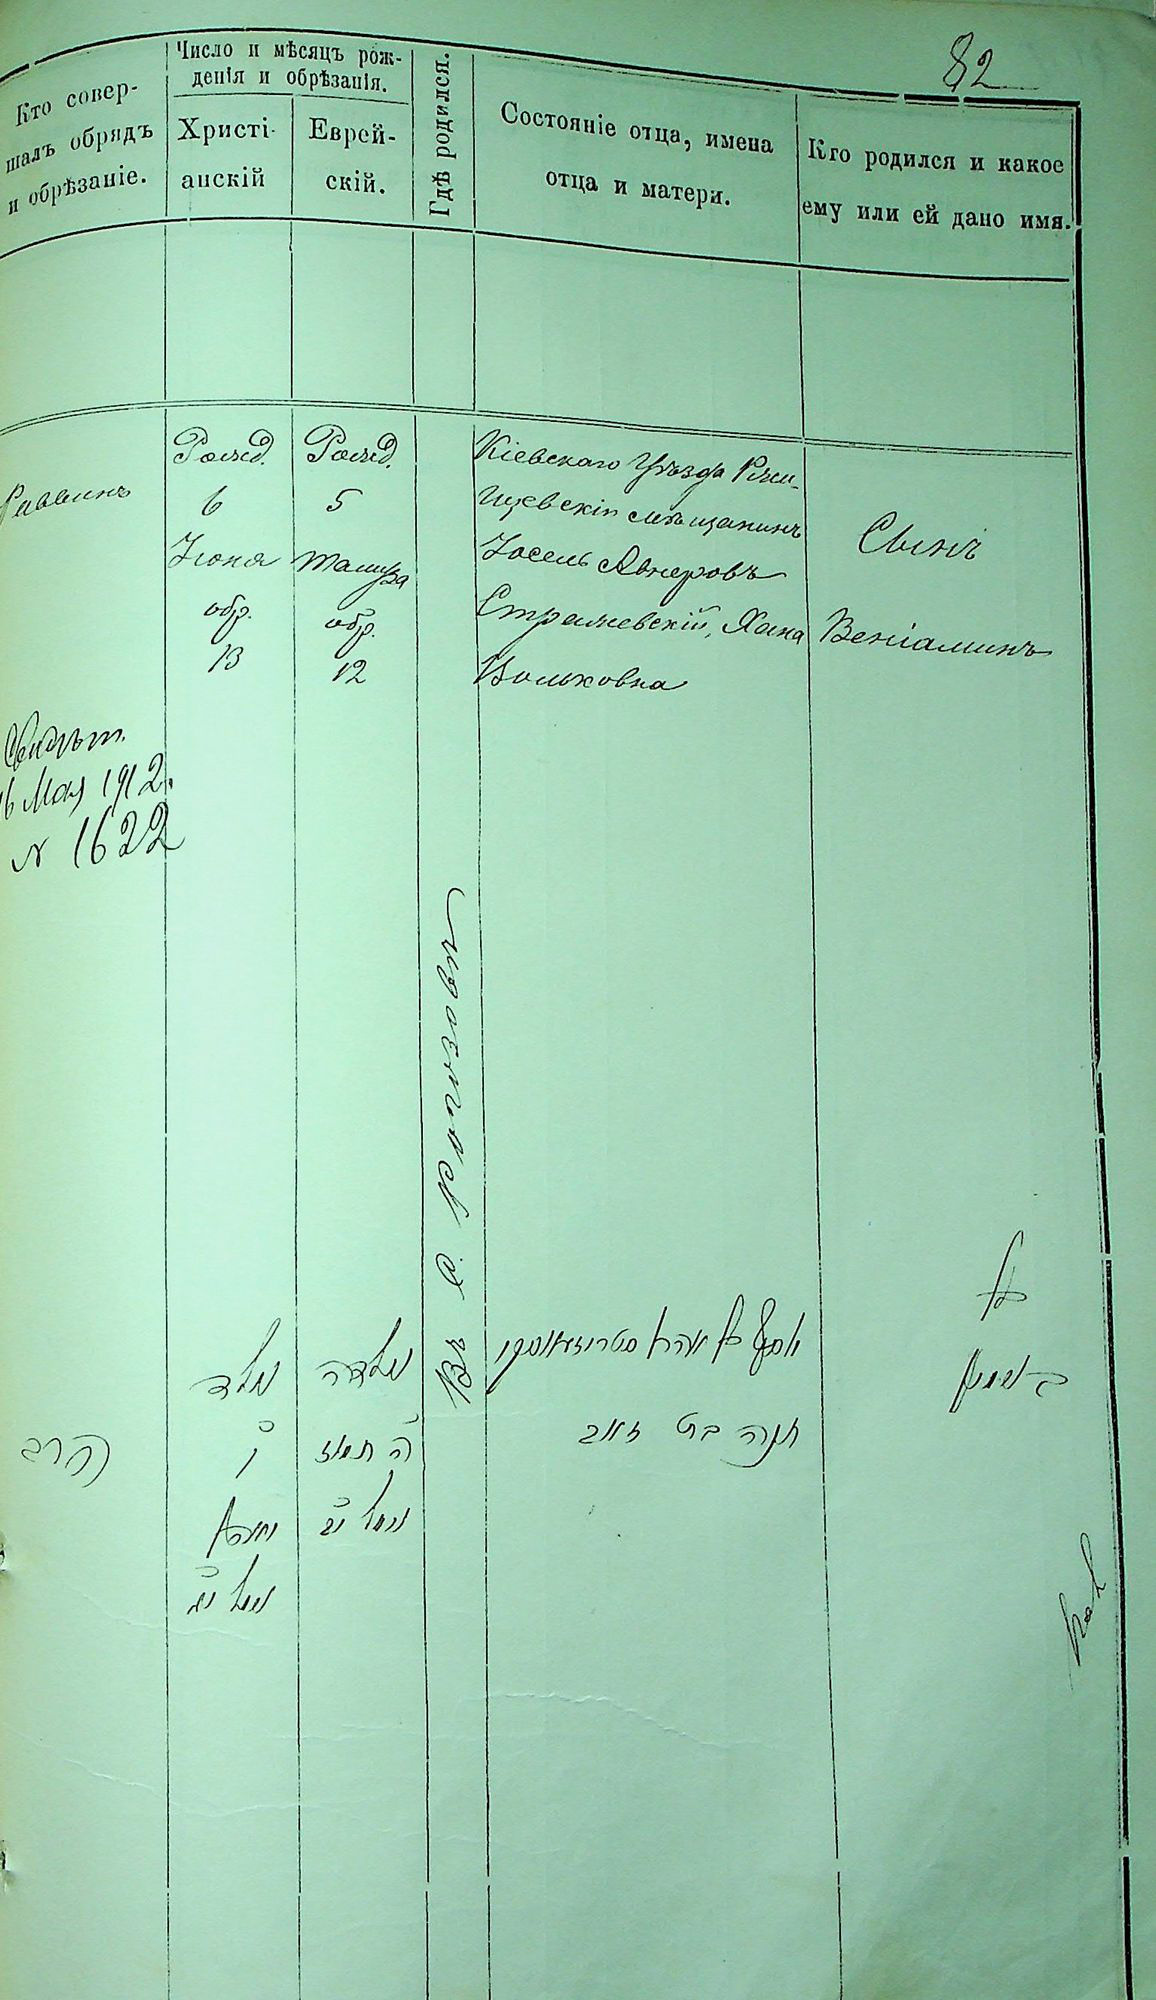 82
Кто совер-
шалъ обрядъ
и обрѣзаніе.
Число и мѣсяцъ рож-
денія и обрѣзанія.
Христі-
анскій
Еврей-
скій.
Гдѣ родился.
Состояніе отца, имена
отца и матери.
Кто родился и какое
ему или ей дано имя.
Раввинъ
Рожд.
6
Іюня
обр.
13
Рожд.
5
Тамуза
обр.
12
Кіевскаго Уѣзда Ржи-
щевскій мѣщанинъ
Іосель Авнеровъ
Стражевскій, Хана
Вольковна
Сынъ
Веніаминъ
Свидѣт.
16 Мая 1912.
№ 1622
Въ с.
הרב
נולד
ו
נימול יג
נולדה
ה תמוז
נימול יב
חנה בת זאב
בן
בנימין